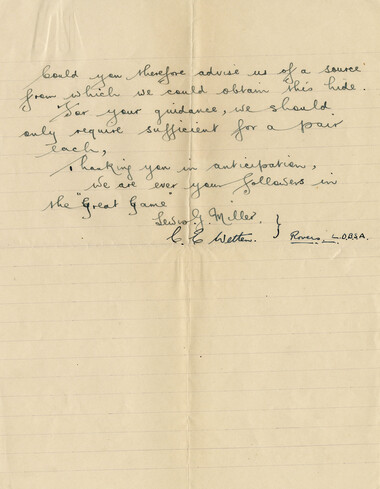 Could you therefore advise us of a source
from which we could obtain this hide.
For your guidance, we should
only require sufficient for a pair
each,
Thanking you in anticipation,
we are ever your followers in
the "Great Game"
Lewis G. Miller.
C. E. Welten. } Rovers, L.D.B.S.A.